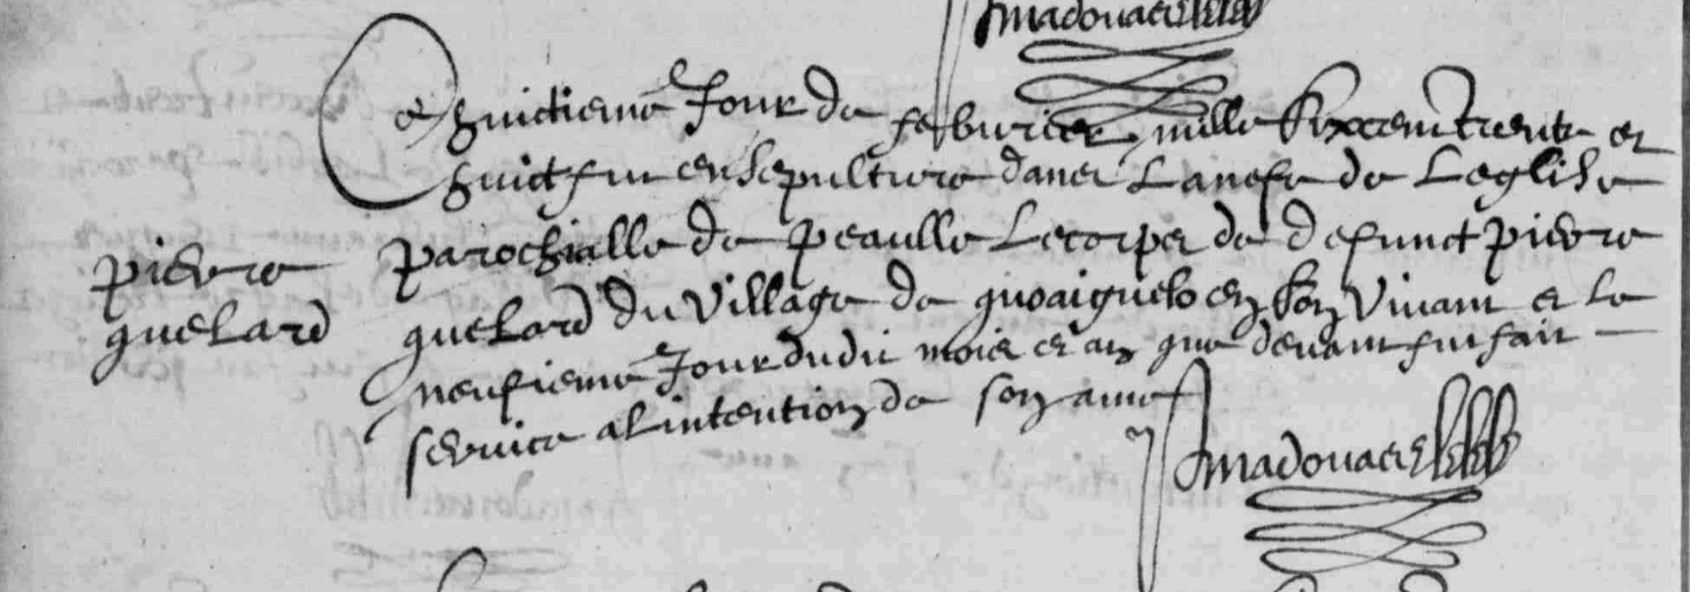 Ce huictieme Jour de febvrier mille Sixcent trente et
huict fut ensepulturé dans La nefve de Leglise
parochialle de peaulle Le corps de defunct pierre
quelard du village de quoaiguelo en son vivant et le
neufieme Jour dudit mois et an que devant fut fait
service a Lintention de son ame
pierre
quelard